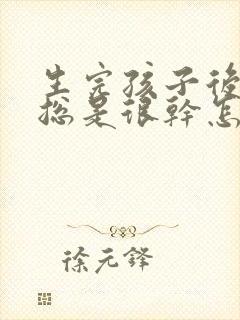 生完孩子後
總是很幹怎
徐元鋒